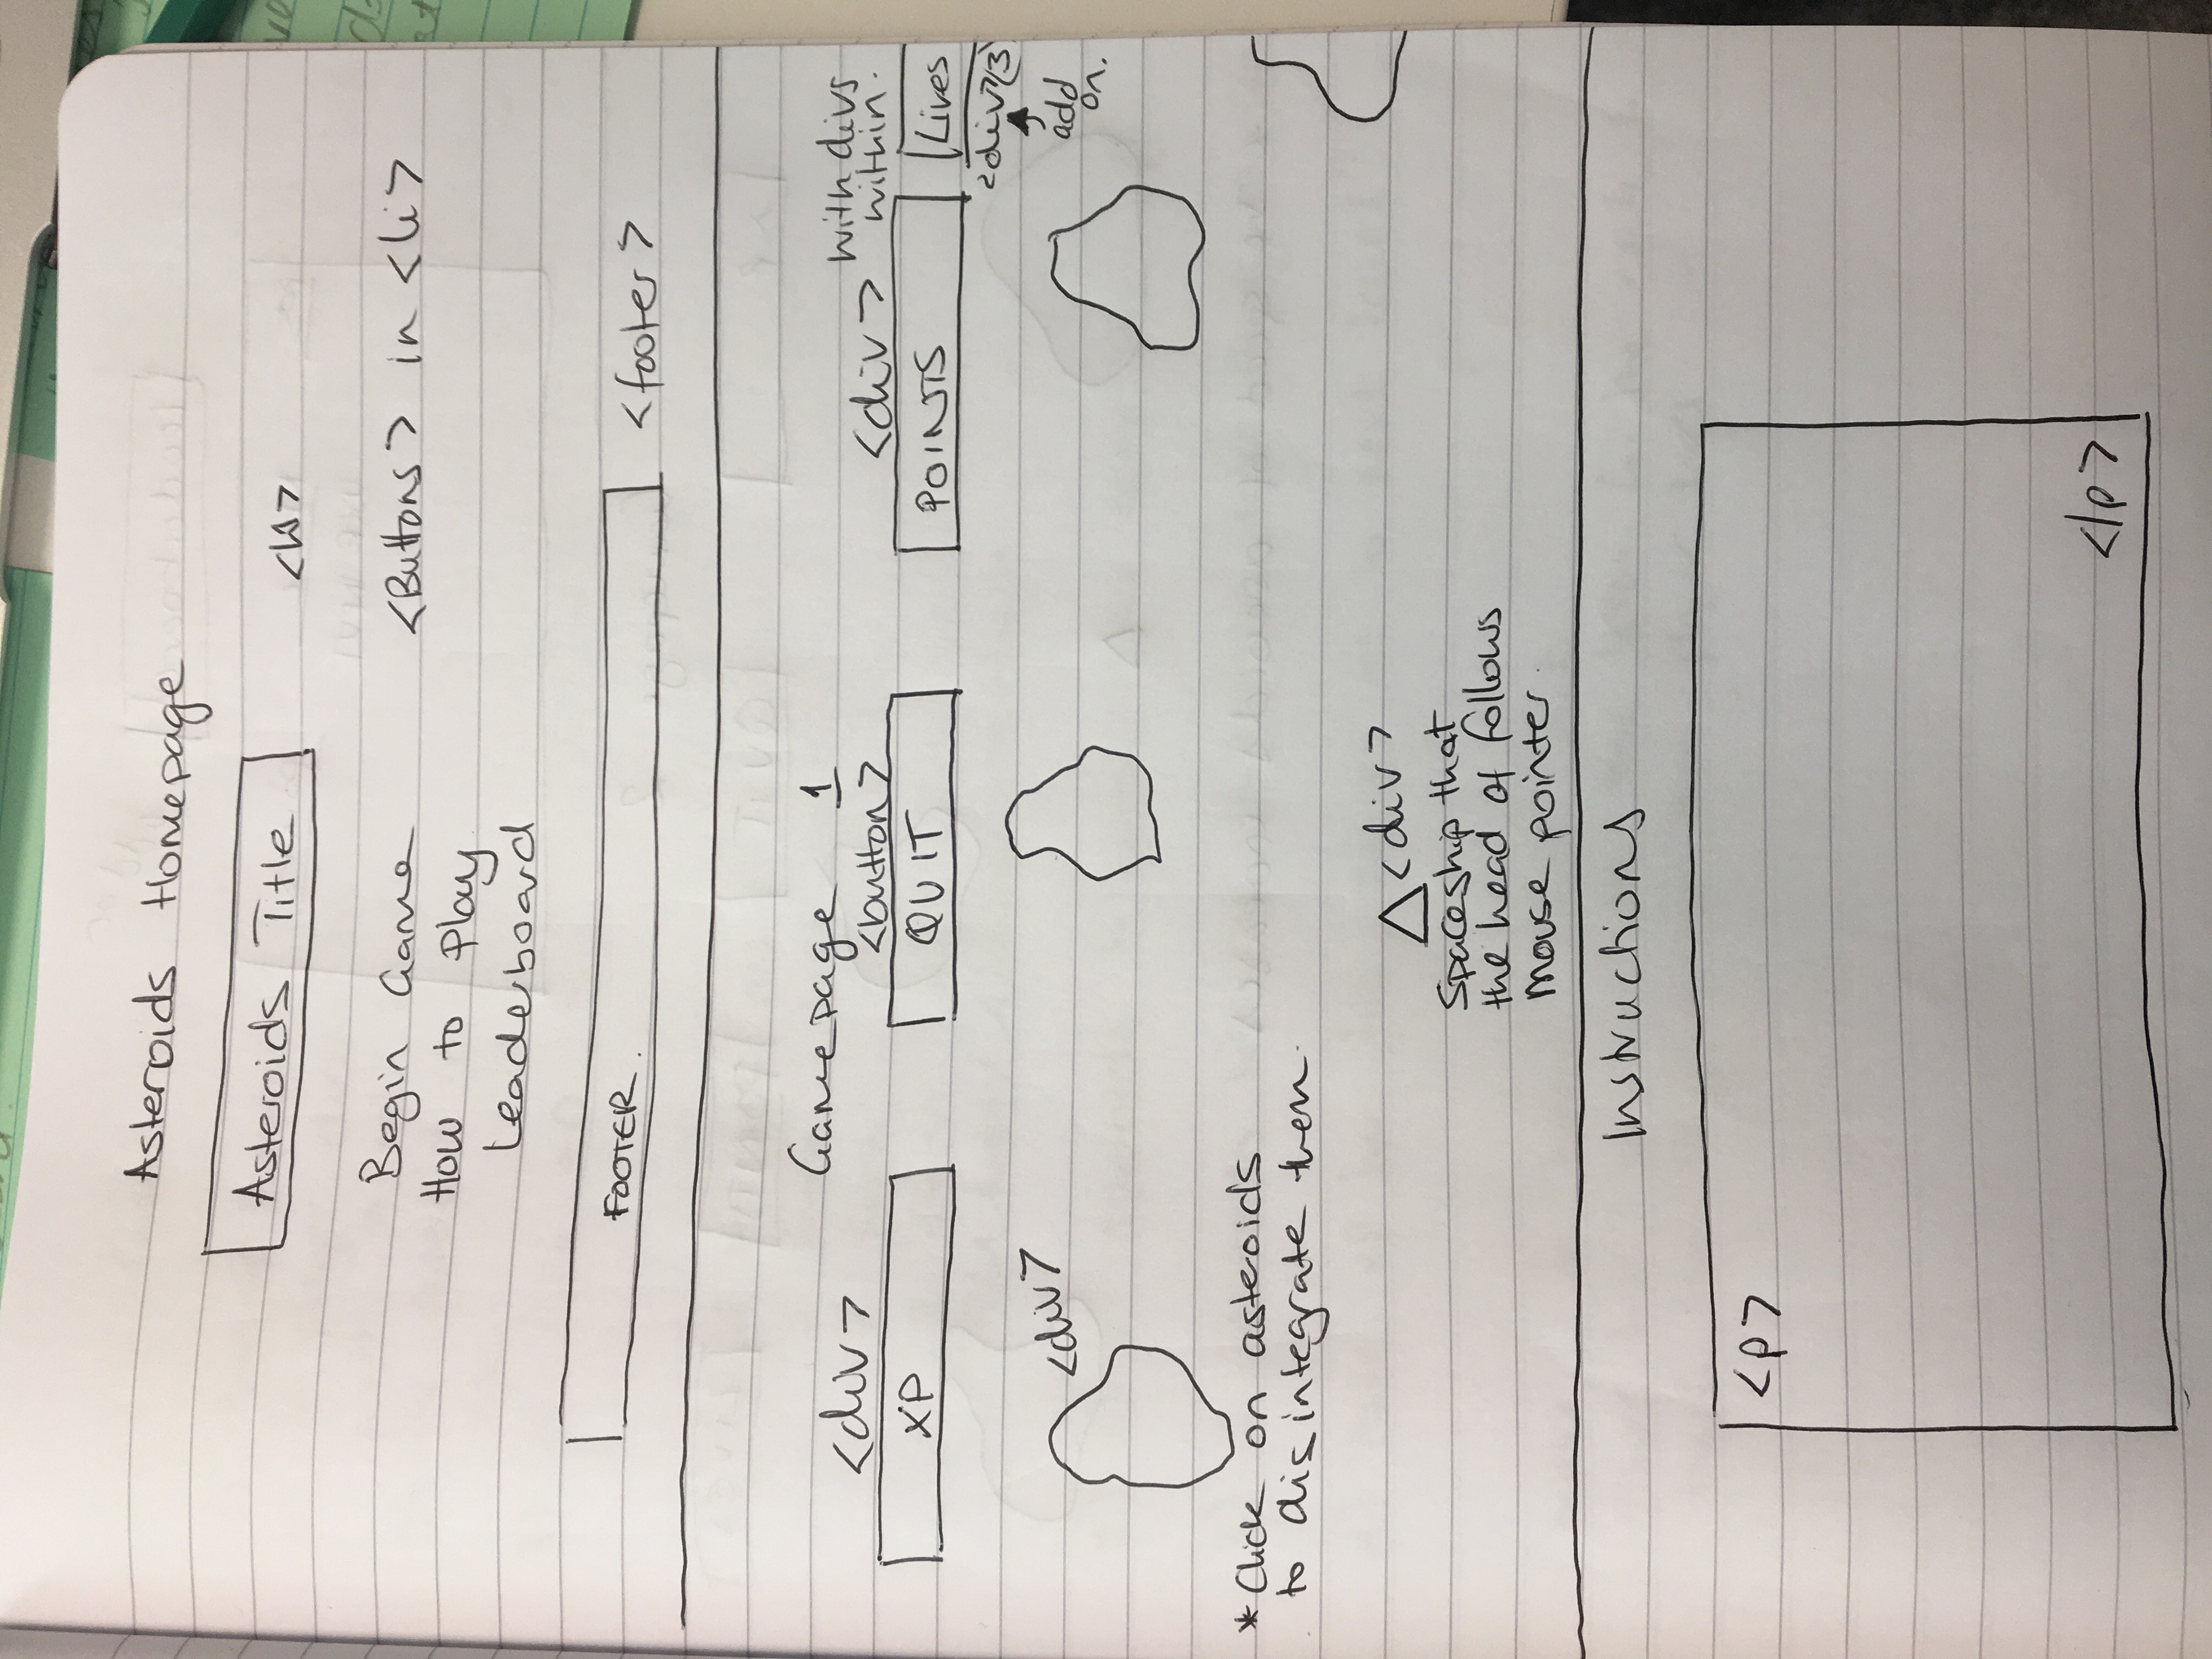 Asteroids Homepage
Asteroids Title
Begin Game <Buttons> in <li>
How to Play
Leaderboard
FOOTER. <footer>
Gamepage 1
<div> <button> <div> with divs
within.
XP QUIT POINTS Lives
<div>(3)
add
on.
<div>
* Click on asteroids
to disintegrate them.
<div>
Spaceship that
the head of follows
mouse pointer.
Instructions
<p>
</p>